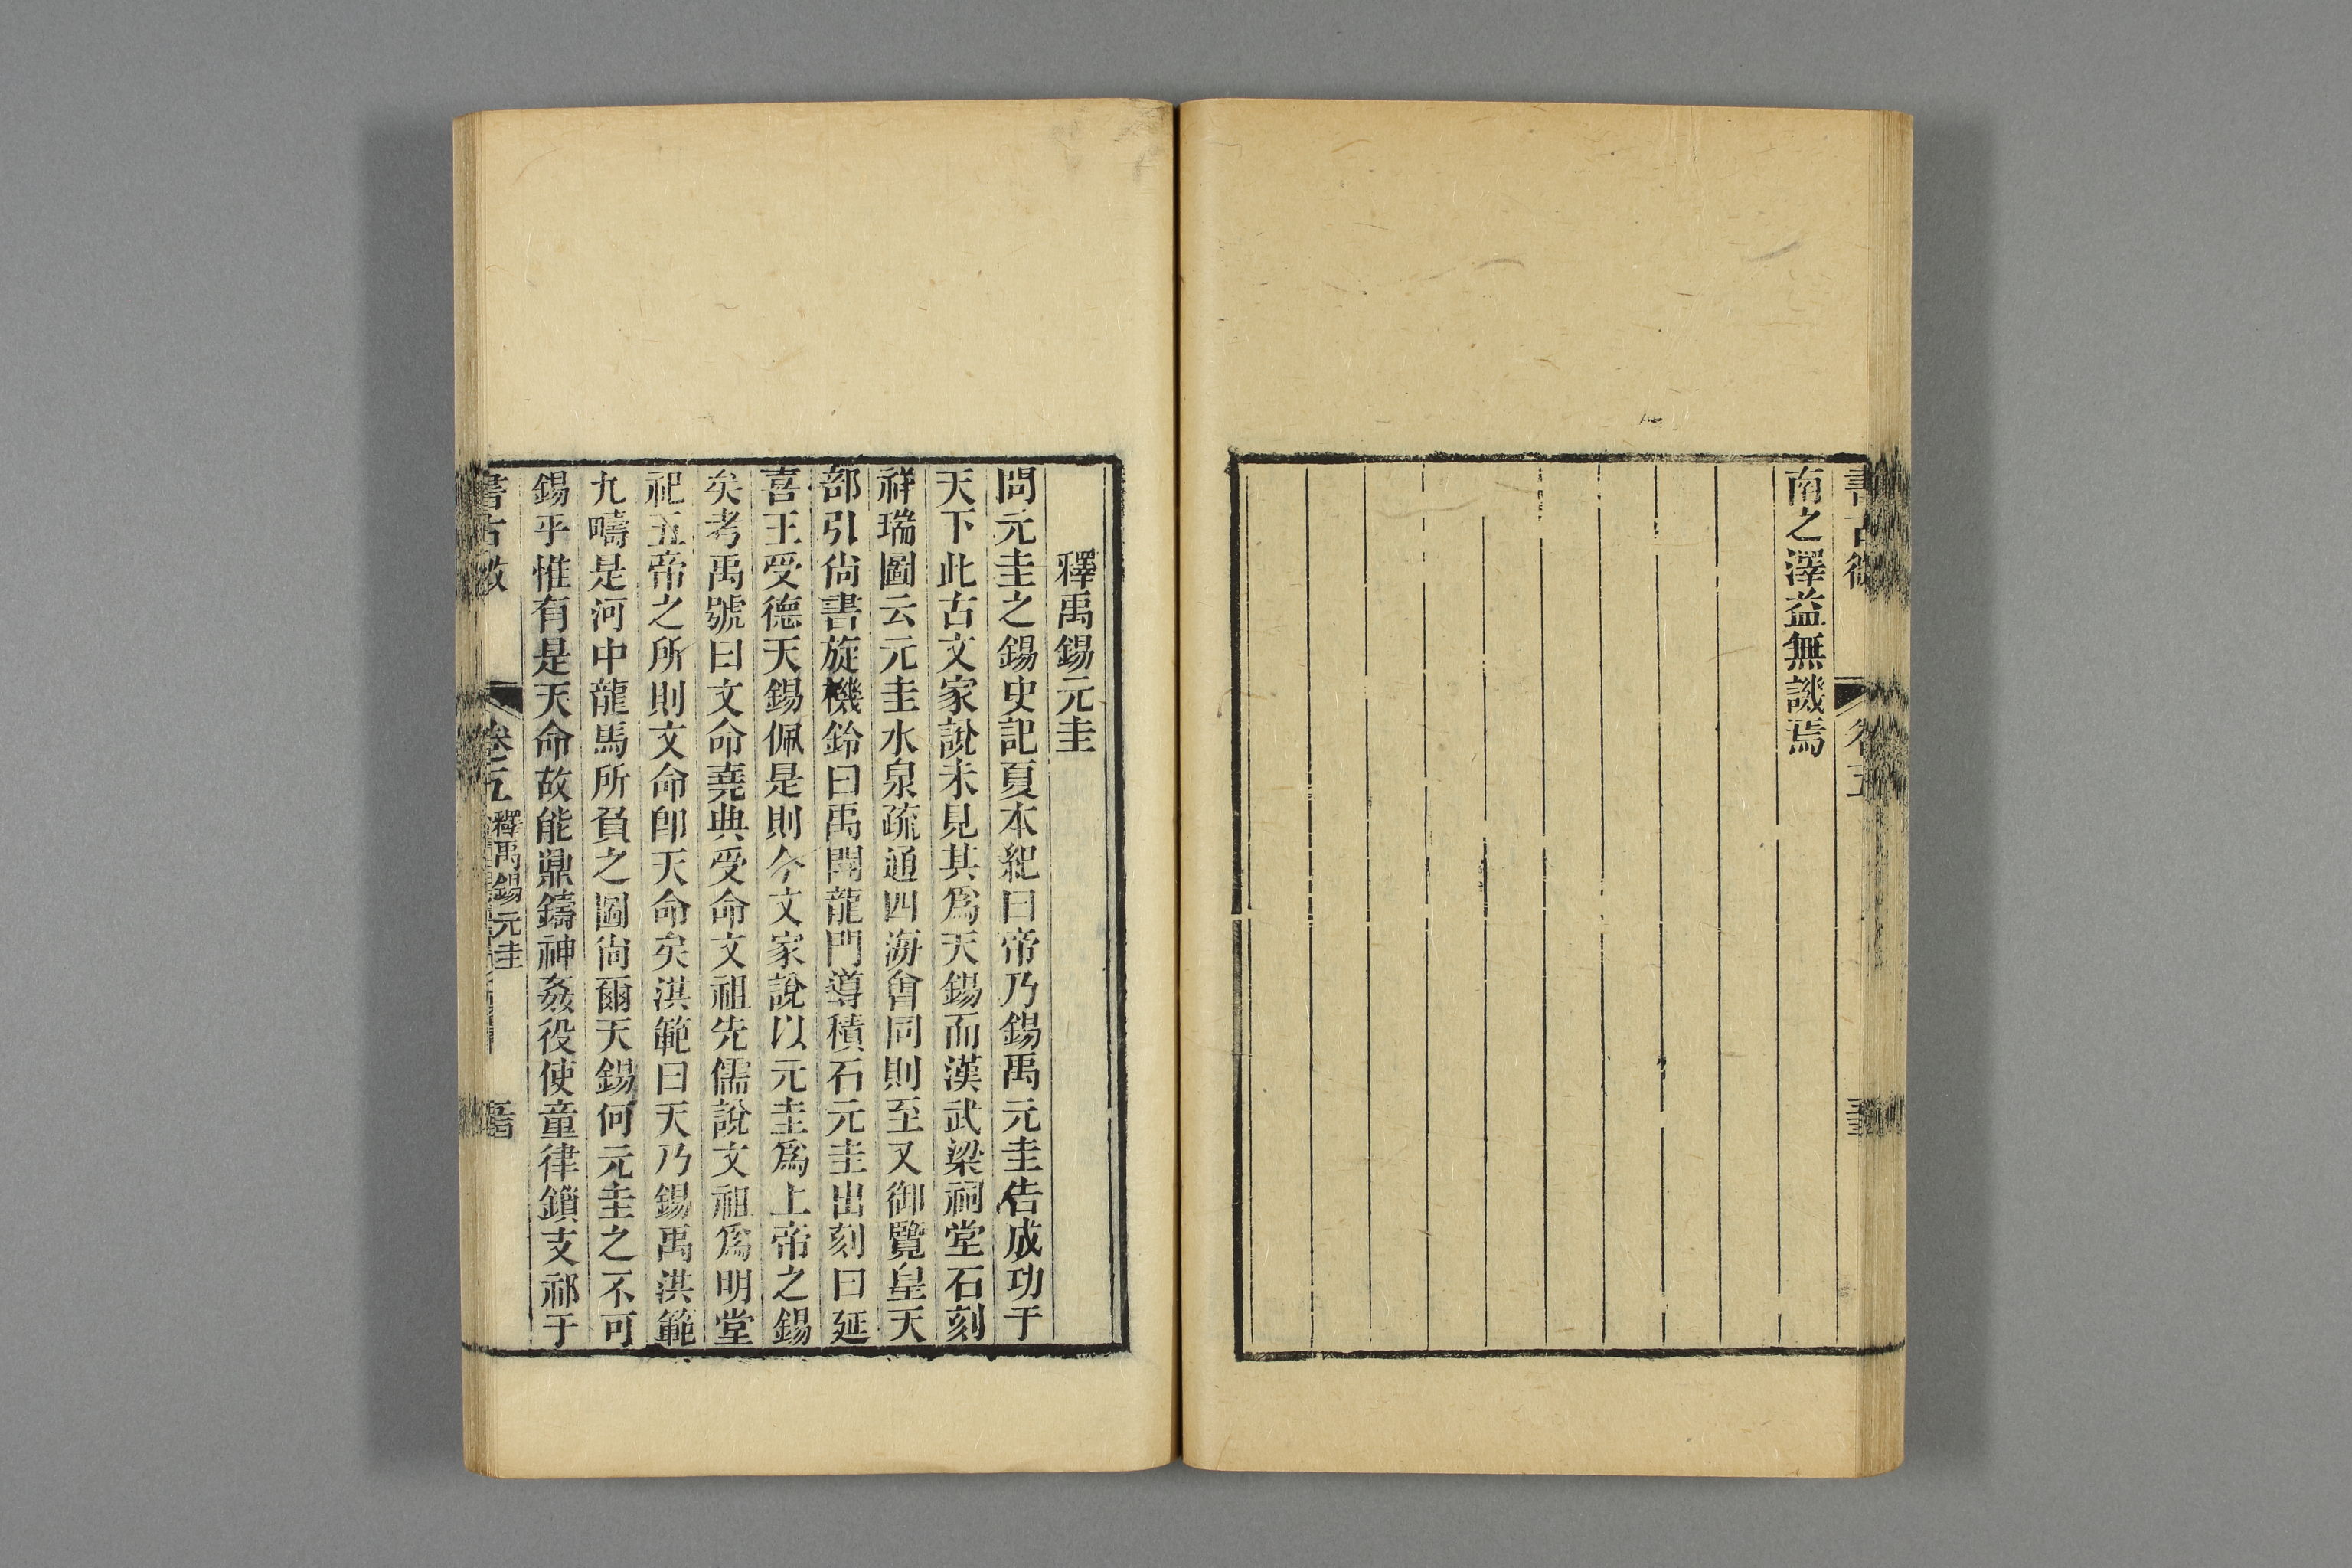 書古微
卷五
南之澤益無譏焉
釋禹錫元圭
問元圭之錫史記夏本紀曰帝乃錫禹元圭告成功于
天下此古文家說未見其爲天錫而漢武梁祠堂石刻
祥瑞圖云元圭水泉疏通四海會同則至又御覽皇天
部引尙書旋機鈴曰禹開龍門導積石元圭出刻曰延
喜王受德天錫佩是則今文家說以元圭爲上帝之錫
矣考禹號曰文命堯典受命文祖先儒說文祖爲明堂
祀五帝之所則文命卽天命矣洪範曰天乃錫禹洪範
九疇是河中龍馬所負之圖尙爾天錫何元圭之不可
錫乎惟有是天命故能鼎鑄神姦役使童律鎖支祁于
書古微
卷五
釋禹錫元圭